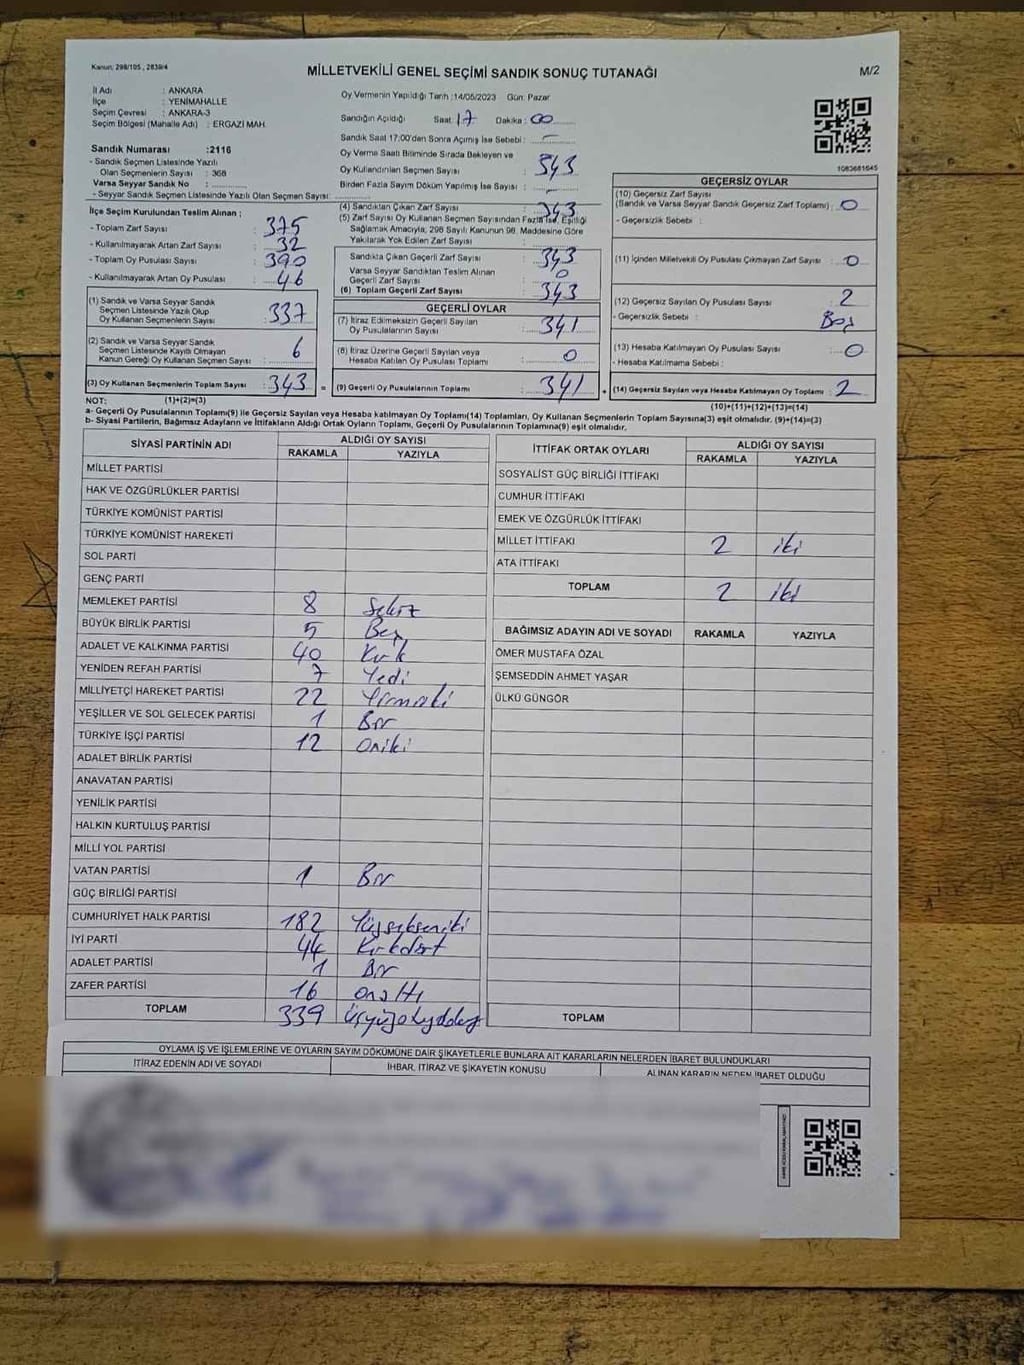 Kanun: 298/105, 2839/4
MİLLETVEKİLİ GENEL SEÇİMİ SANDIK SONUÇ TUTANAĞI
M/2
İl Adı : ANKARA
İlçe : YENİMAHALLE
Seçim Çevresi : ANKARA-3
Seçim Bölgesi (Mahalle Adı) : ERGAZİ MAH.
Sandık Numarası :2116
- Sandık Seçmen Listesinde Yazılı
Olan Seçmenlerin Sayısı : 368
Varsa Seyyar Sandık No :
- Seyyar Sandık Seçmen Listesinde Yazılı Olan Seçmen Sayısı:
İlçe Seçim Kurulundan Teslim Alınan ;
- Toplam Zarf Sayısı : 375
- Kullanılmayarak Artan Zarf Sayısı : 32
- Toplam Oy Pusulası Sayısı : 390
- Kullanılmayarak Artan Oy Pusulası : 46
(1) Sandık ve Varsa Seyyar Sandık
Seçmen Listesinde Yazılı Olup
Oy Kullanan Seçmenlerin Sayısı : 337
(2) Sandık ve Varsa Seyyar Sandık
Seçmen Listesinde Kayıtlı Olmayan
Kanun Gereği Oy Kullanan Seçmen Sayısı : 6
(3) Oy Kullanan Seçmenlerin Toplam Sayısı : 343 =
Oy Vermenin Yapıldığı Tarih :14/05/2023 Gün: Pazar
Sandığın Açıldığı Saat : 17 Dakika : 00
Sandık Saat 17:00'den Sonra Açımış İse Sebebi : -
Oy Verme Saati Bitiminde Sırada Bekleyen ve
Oy Kullandırılan Seçmen Sayısı : 343
Birden Fazla Sayım Döküm Yapılmış İse Sayısı : -
(4) Sandıktan Çıkan Zarf Sayısı : 343
(5) Zarf Sayısı Oy Kullanan Seçmen Sayısından Fazla İse, Eşitliği
Sağlamak Amacıyla, 298 Sayılı Kanunun 98. Maddesine Göre
Yakılarak Yok Edilen Zarf Sayısı :
Sandıkta Çıkan Geçerli Zarf Sayısı : 343
Varsa Seyyar Sandıktan Teslim Alınan
Geçerli Zarf Sayısı : 0
(6) Toplam Geçerli Zarf Sayısı : 343
GEÇERLİ OYLAR
(7) İtiraz Edilmeksizin Geçerli Sayılan
Oy Pusulalarının Sayısı : 341
(8) İtiraz Üzerine Geçerli Sayılan veya
Hesaba Katılan Oy Pusulası Toplamı : 0
(9) Geçerli Oy Pusulalarının Toplamı : 341 +
1083681645
GEÇERSİZ OYLAR
(10) Geçersiz Zarf Sayısı
(Sandık ve Varsa Seyyar Sandık Geçersiz Zarf Toplamı) : 0
- Geçersizlik Sebebi :
(11) İçinden Milletvekili Oy Pusulası Çıkmayan Zarf Sayısı : 0
(12) Geçersiz Sayılan Oy Pusulası Sayısı : 2
- Geçersizlik Sebebi : Boş
(13) Hesaba Katılmayan Oy Pusulası Sayısı : 0
- Hesaba Katılmama Sebebi :
(14) Geçersiz Sayılan veya Hesaba Katılmayan Oy Toplamı : 2
NOT: (1)+(2)=(3) (10)+(11)+(12)+(13)=(14)
a- Geçerli Oy Pusulalarının Toplamı(9) ile Geçersiz Sayılan veya Hesaba katılmayan Oy Toplamı(14) Toplamları, Oy Kullanan Seçmenlerin Toplam Sayısına(3) eşit olmalıdır. (9)+(14)=(3)
b- Siyasi Partilerin, Bağımsız Adayların ve İttifakların Aldığı Ortak Oyların Toplamı, Geçerli Oy Pusulalarının Toplamına(9) eşit olmalıdır.
SİYASİ PARTİNİN ADI ALDIĞI OY SAYISI
RAKAMLA YAZIYLA
MİLLET PARTİSİ
HAK VE ÖZGÜRLÜKLER PARTİSİ
TÜRKİYE KOMÜNİST PARTİSİ
TÜRKİYE KOMÜNİST HAREKETİ
SOL PARTİ
GENÇ PARTİ
MEMLEKET PARTİSİ 8 Sekiz
BÜYÜK BİRLİK PARTİSİ 5 Beş
ADALET VE KALKINMA PARTİSİ 40 Kırk
YENİDEN REFAH PARTİSİ 7 Yedi
MİLLİYETÇİ HAREKET PARTİSİ 22 Yirmiiki
YEŞİLLER VE SOL GELECEK PARTİSİ 1 Bir
TÜRKİYE İŞÇİ PARTİSİ 12 Oniki
ADALET BİRLİK PARTİSİ
ANAVATAN PARTİSİ
YENİLİK PARTİSİ
HALKIN KURTULUŞ PARTİSİ
MİLLİ YOL PARTİSİ
VATAN PARTİSİ 1 Bir
GÜÇ BİRLİĞİ PARTİSİ
CUMHURİYET HALK PARTİSİ 182 Yüzsekseniki
İYİ PARTİ 44 Kırkdört
ADALET PARTİSİ 1 Bir
ZAFER PARTİSİ 16 onaltı
TOPLAM 339 üçyüzotuzdokuz
İTTİFAK ORTAK OYLARI ALDIĞI OY SAYISI
RAKAMLA YAZIYLA
SOSYALİST GÜÇ BİRLİĞİ İTTİFAKI
CUMHUR İTTİFAKI
EMEK VE ÖZGÜRLÜK İTTİFAKI
MİLLET İTTİFAKI 2 iki
ATA İTTİFAKI
TOPLAM 2 iki
BAĞIMSIZ ADAYIN ADI VE SOYADI RAKAMLA YAZIYLA
ÖMER MUSTAFA ÖZAL
ŞEMSEDDİN AHMET YAŞAR
ÜLKÜ GÜNGÖR
TOPLAM
OYLAMA İŞ VE İŞLEMLERİNE VE OYLARIN SAYIM DÖKÜMÜNE DAİR ŞİKAYETLERLE BUNLARA AİT KARARLARIN NELERDEN İBARET BULUNDUKLARI
İTİRAZ EDENİN ADI VE SOYADI İHBAR, İTİRAZ VE ŞİKAYETİN KONUSU ALINAN KARARIN NEDEN İBARET OLDUĞU